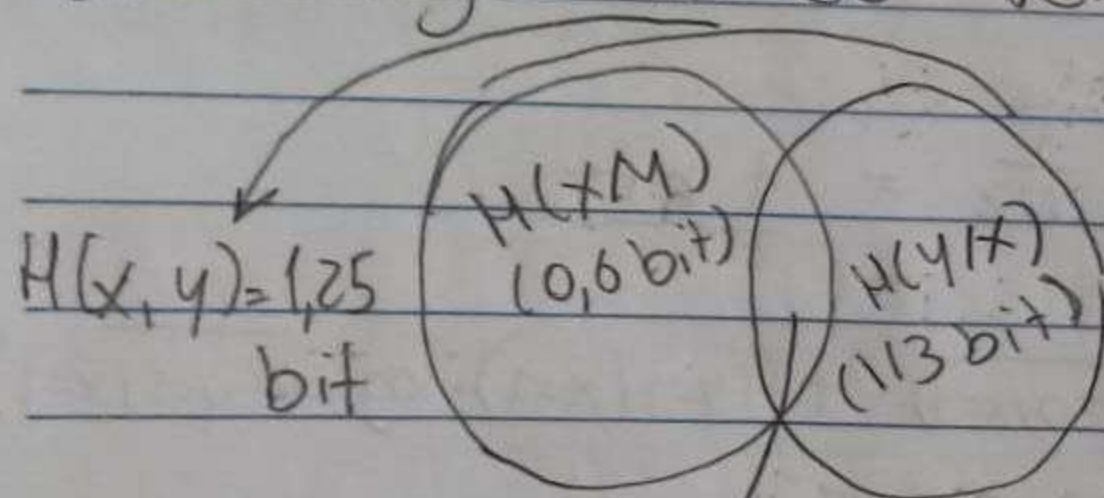 H(X,Y)=1,25
bit
H(X|Y)
(0,6 bit)
H(Y|X)
(1/3 bit)